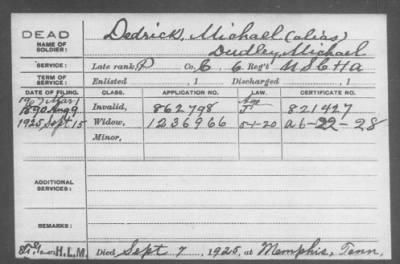 DEAD
NAME OF SOLDIER: Dedrick, Michael (alias)
Dudley, Michael
SERVICE: Late rank, P Co. C 6 Reg't U S C H A
TERM OF SERVICE: Enlisted , 1 Discharged , 1
DATE OF FILING. CLASS. APPLICATION NO. LAW. CERTIFICATE NO.
1907 Mar 1 Age
1890 Aug 9 Invalid, 862798 J 821427
1925 Sept 15 Widow, 1236966 5-1-20 a b-22-28
Minor,
ADDITIONAL SERVICES:
REMARKS:
H.L.M. Died Sept 7, 1925, at Memphis, Tenn,